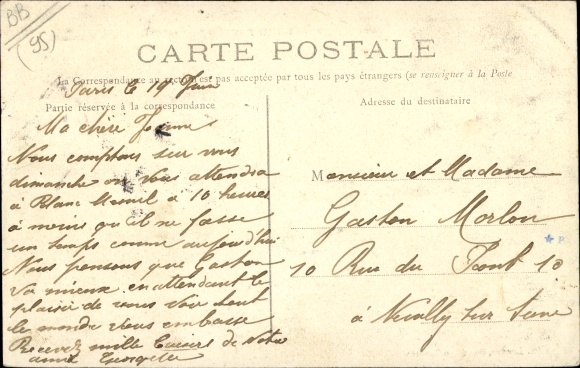 BB
(95)
CARTE POSTALE
La Correspondance au recto n'est pas acceptée par tous les pays étrangers (se renseigner à la Poste
Paris le 19 Juin
Partie réservée à la correspondance
Adresse du destinataire
Ma chère Jeanne
Nous comptons sur vous
dimanche on vous attendra
à Blanc Mesnil à 10 heures
à moins qu'il ne fasse
un temps comme aujourd'hui
Nous pensons que Gaston
va mieux en attendant le
plaisir de vous voir tout
le monde vous embrasse
Recevez mille baisers de votre
amie Georgette
Monsieur et Madame
Gaston Morlon
10 Rue du Pont 10
à Neuilly sur Seine